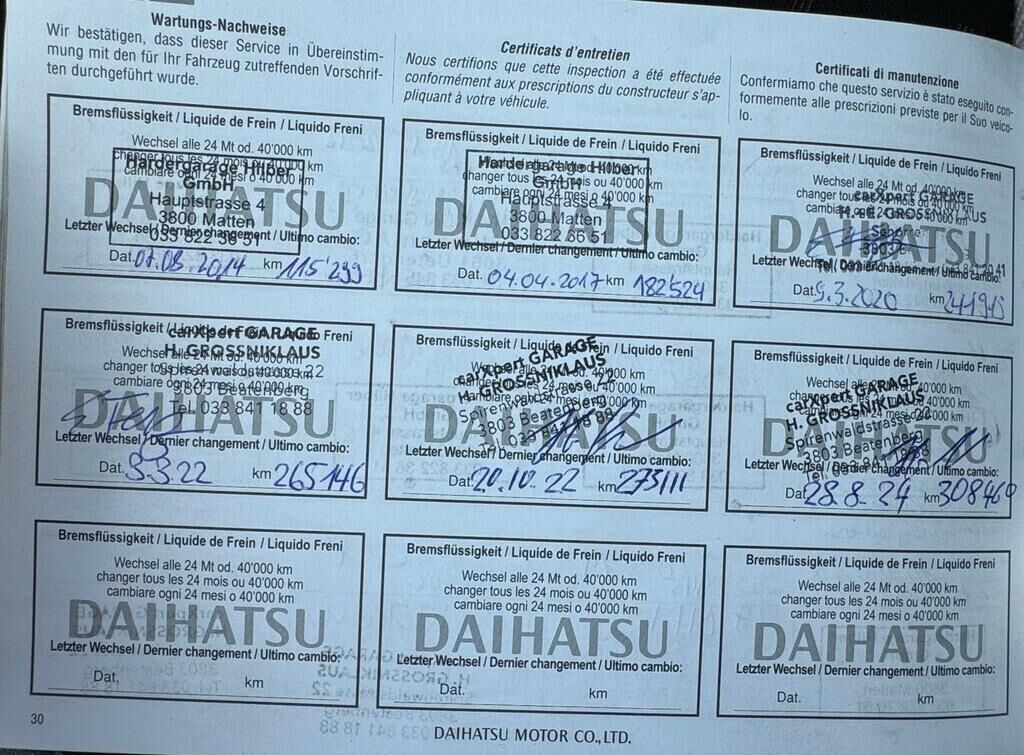 Wartungs-Nachweise
Wir bestätigen, dass dieser Service in Übereinstim-
mung mit den für Ihr Fahrzeug zutreffenden Vorschrif-
ten durchgeführt wurde.
Certificats d'entretien
Nous certifions que cette inspection a été effectuée
conformément aux prescriptions du constructeur s'ap-
pliquant à votre véhicule.
Certificati di manutenzione
Confermiamo che questo servizio è stato eseguito con-
formemente alle prescrizioni previste per il Suo veico-
lo.
Bremsflüssigkeit / Liquide de Frein / Liquido Freni
Wechsel alle 24 Mt od. 40'000 km
changer tous les 24 mois ou 40'000 km
cambiare ogni 24 mesi o 40'000 km
Hardergarage Hilber
GmbH
Hauptstrasse 4
3800 Matten
033 822 36 51
DAIHATSU
Letzter Wechsel / Dernier changement / Ultimo cambio:
Dat. 07.08.2014 km 115'299
Bremsflüssigkeit / Liquide de Frein / Liquido Freni
Wechsel alle 24 Mt od. 40'000 km
changer tous les 24 mois ou 40'000 km
cambiare ogni 24 mesi o 40'000 km
Hardergarage Hilber
GmbH
Hauptstrasse 4
3800 Matten
033 822 36 51
DAIHATSU
Letzter Wechsel / Dernier changement / Ultimo cambio:
Dat. 04.04.2017 km 182524
Bremsflüssigkeit / Liquide de Frein / Liquido Freni
Wechsel alle 24 Mt od. 40'000 km
changer tous les 24 mois ou 40'000 km
cambiare ogni 24 mesi o 40'000 km
carXpert GARAGE
H. GROSSNIKLAUS
DAIHATSU
Letzter Wechsel / Dernier changement / Ultimo cambio:
Dat. 9.3.2020 km 241945
Bremsflüssigkeit / Liquide de Frein / Liquido Freni
Wechsel alle 24 Mt od. 40'000 km
changer tous les 24 mois ou 40'000 km
cambiare ogni 24 mesi o 40'000 km
carXpert GARAGE
H. GROSSNIKLAUS
Spirenwaldstrasse 22
3803 Beatenberg
Tel. 033 841 18 88
DAIHATSU
Letzter Wechsel / Dernier changement / Ultimo cambio:
Dat. 3.3.22 km 265146
Bremsflüssigkeit / Liquide de Frein / Liquido Freni
Wechsel alle 24 Mt od. 40'000 km
changer tous les 24 mois ou 40'000 km
cambiare ogni 24 mesi o 40'000 km
carXpert GARAGE
H. GROSSNIKLAUS
Spirenwaldstrasse 22
3803 Beatenberg
033 841 18 88
DAIHATSU
Letzter Wechsel / Dernier changement / Ultimo cambio:
Dat. 20.10.22 km 273111
Bremsflüssigkeit / Liquide de Frein / Liquido Freni
Wechsel alle 24 Mt od. 40'000 km
changer tous les 24 mois ou 40'000 km
cambiare ogni 24 mesi o 40'000 km
carXpert GARAGE
H. GROSSNIKLAUS
Spirenwaldstrasse 22
3803 Beatenberg
Tel. 033 841 18 88
DAIHATSU
Letzter Wechsel / Dernier changement / Ultimo cambio:
Dat. 28.8.24 km 308460
Bremsflüssigkeit / Liquide de Frein / Liquido Freni
Wechsel alle 24 Mt od. 40'000 km
changer tous les 24 mois ou 40'000 km
cambiare ogni 24 mesi o 40'000 km
DAIHATSU
Letzter Wechsel / Dernier changement / Ultimo cambio:
Dat. km
Bremsflüssigkeit / Liquide de Frein / Liquido Freni
Wechsel alle 24 Mt od. 40'000 km
changer tous les 24 mois ou 40'000 km
cambiare ogni 24 mesi o 40'000 km
DAIHATSU
Letzter Wechsel / Dernier changement / Ultimo cambio:
Dat. km
Bremsflüssigkeit / Liquide de Frein / Liquido Freni
Wechsel alle 24 Mt od. 40'000 km
changer tous les 24 mois ou 40'000 km
cambiare ogni 24 mesi o 40'000 km
DAIHATSU
Letzter Wechsel / Dernier changement / Ultimo cambio:
Dat. km
30
DAIHATSU MOTOR CO.,LTD.